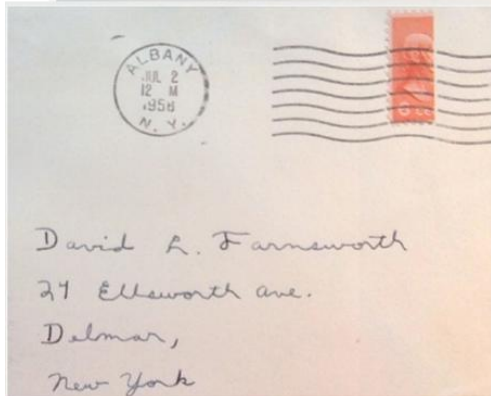 ALBANY
JUL 2
12 M
1958
N. Y.
David L. Farnsworth
27 Ellsworth Ave.
Delmar,
New York